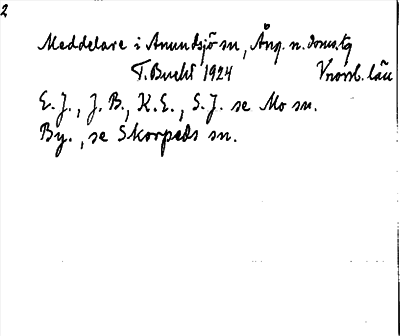 2
Meddelare i Anundsjö sn, Ång. n. doms. tg
T. Bucht 1924 Vnorrl. län
E. J., J. B., K. E., S. J. se Mo sn.
By., se Skorpeds sn.